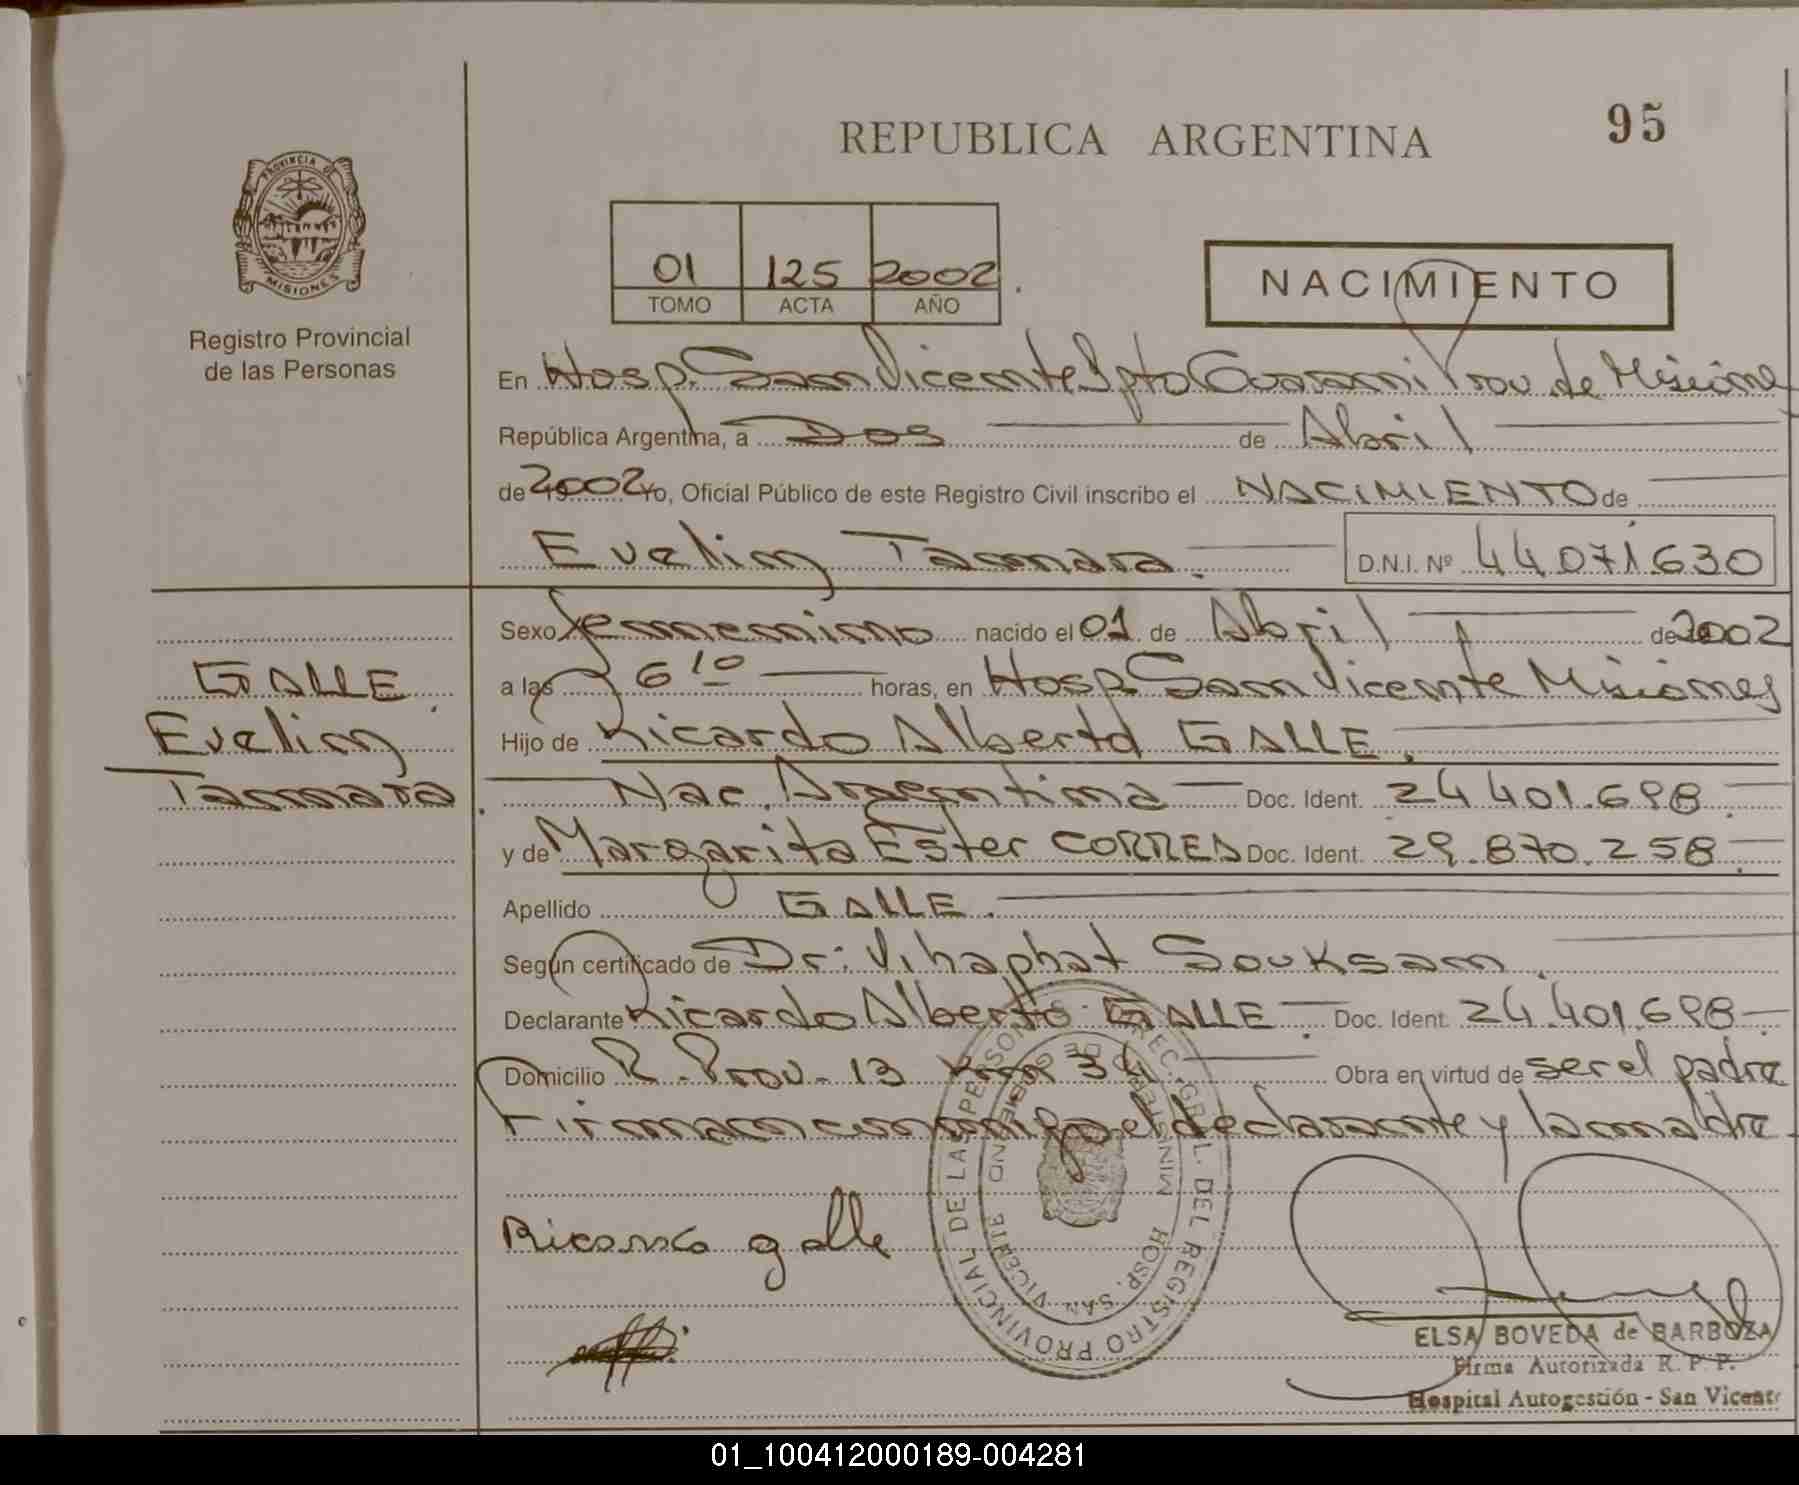 REPUBLICA ARGENTINA
95
PROVINCIA DE MISIONES
Registro Provincial
de las Personas
01 125 2002
TOMO ACTA AÑO
NACIMIENTO
En Hosp. San Vicente Dpto Guarani Prov de Misiones
República Argentina, a Dos de Abril
de 2002 Yo, Oficial Público de este Registro Civil inscribo el NACIMIENTO de
Evelin Tamara. D.N.I. Nº 44.071.630
Sexo femenino nacido el 01 de Abril de 2002
a las 6 10 horas, en Hosp. San Vicente Misiones
Hijo de Ricardo Alberto GALLE.
Nac. Argentina Doc. Ident. 24.401.698
y de Margarita Ester CORREA Doc. Ident. 29.870.258
Apellido GALLE.
Según certificado de Dr: Vihaphat Souksam.
Declarante Ricardo Alberto GALLE Doc. Ident. 24.401.698
Domicilio R. Prov. 13 Km 34 Obra en virtud de ser el padre
Firman conmigo el declarante y la madre
GALLE
Evelin
Tamara.
Ricardo galle
DEL REGISTRO PROVINCIAL DE LAS PERSONAS
MINISTERIO DE GOBIERNO
HOSP. SAN VICENTE
ELSA BOVEDA de BARBOZA
Firma Autorizada R. P. P.
Hospital Autogestión - San Vicente
01_100412000189-004281